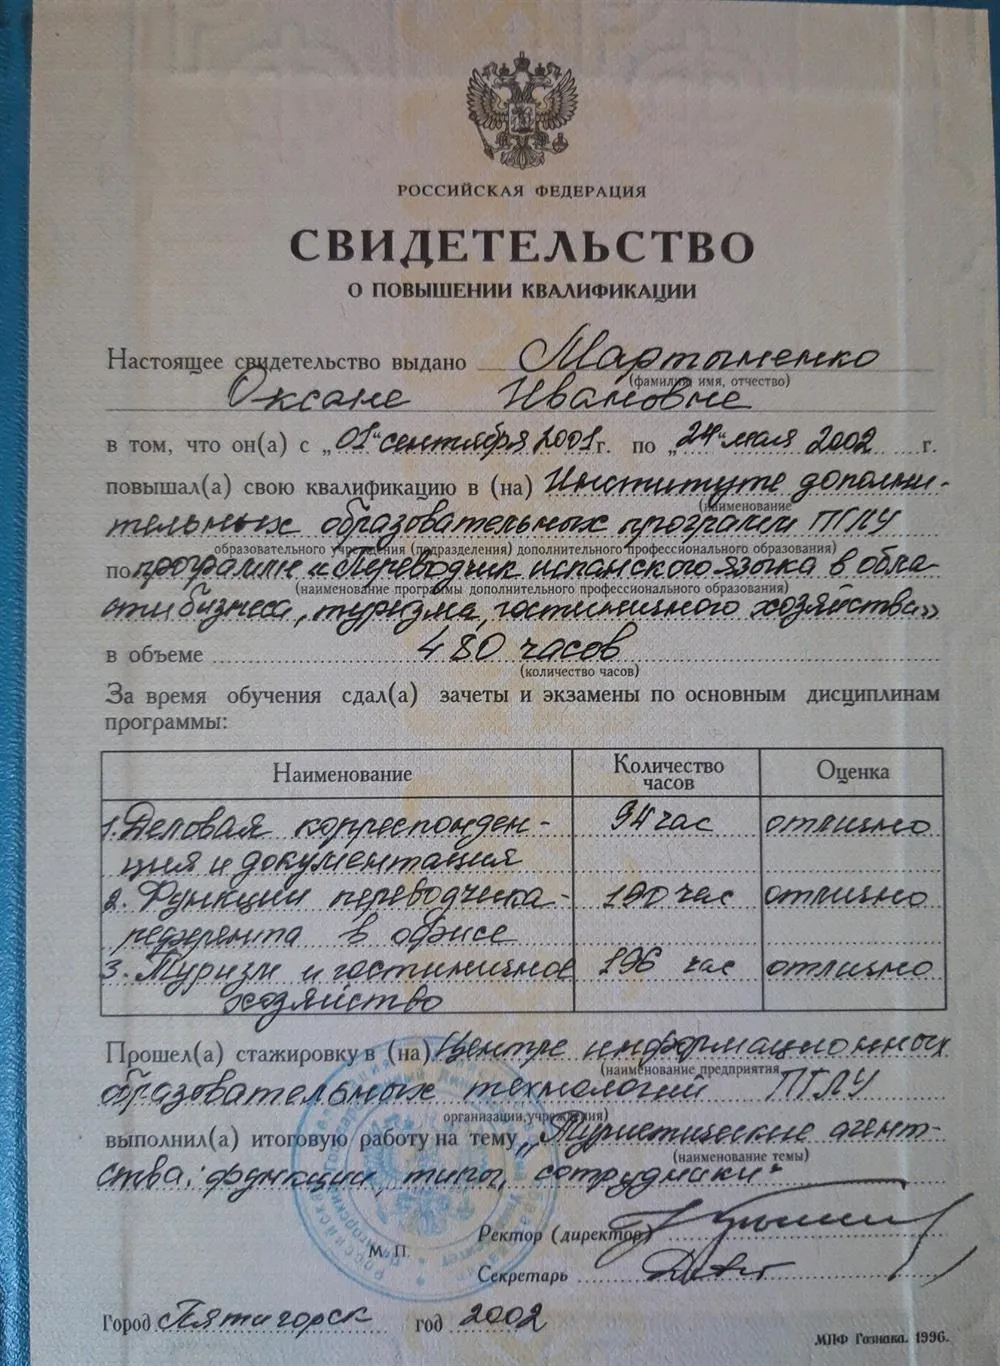 РОССИЙСКАЯ ФЕДЕРАЦИЯ
СВИДЕТЕЛЬСТВО
О ПОВЫШЕНИИ КВАЛИФИКАЦИИ
Настоящее свидетельство выдано Мартыненко
(фамилия, имя, отчество)
Оксане Ивановне
в том, что он(а) с „01“ сентября 2001 г. по „24“ мая 2002 г.
повышал(а) свою квалификацию в (на) Институте дополни-
(наименование
тельных образовательных программ ПГЛУ
образовательного учреждения (подразделения) дополнительного профессионального образования)
по программе «Переводчик испанского языка в обла-
(наименование программы дополнительного профессионального образования)
сти бизнеса, туризма, гостиничного хозяйства»
в объеме 480 часов
(количество часов)
За время обучения сдал(а) зачеты и экзамены по основным дисциплинам
программы:
Наименование Количество часов Оценка
1. Деловая корреспонден- 94 час отлично
ция и документация
2. Функции переводчика- 190 час отлично
референта в офисе
3. Туризм и гостиничное 196 час отлично
хозяйство
Прошел(а) стажировку в (на) Центре информационных
(наименование предприятия,
образовательных технологий ПГЛУ
организации, учреждения)
выполнил(а) итоговую работу на тему „Туристические агент-
(наименование темы)
ства: функции, типы, сотрудники“
Ректор (директор)
М. П.
Секретарь
Город Пятигорск год 2002
МПФ Гознака. 1996.